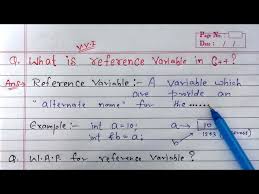 Page No.
Date / /
V.V.I
Q. What is reference Variable in C++?
Ans → Reference Variable :- A Variable which
are provide an
"alternate name" for the ......
Example :- int a=10;
int &b=a;
a → 10
b
Q. W.A.P. for reference Variable?